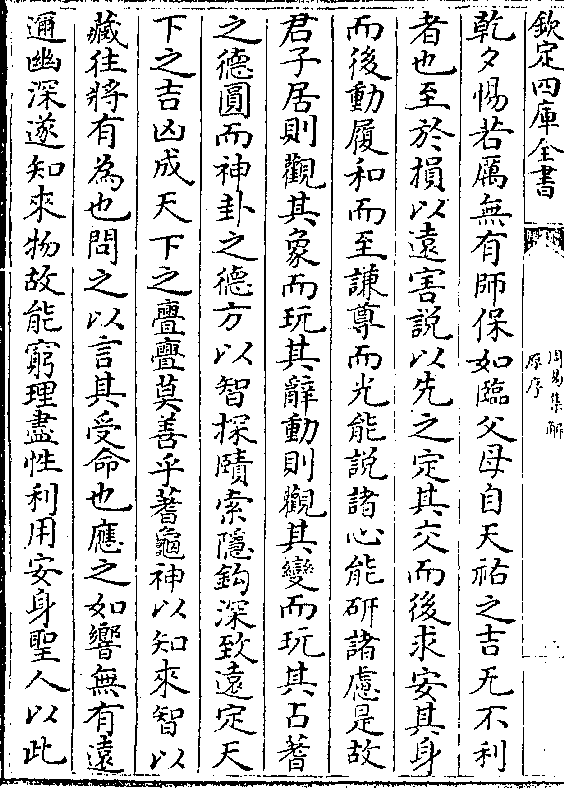 欽定四庫全書
周易集解
原序
乾夕惕若厲無有師保如臨父母自天祐之吉无不利
者也至於損以遠害說以先之定其交而後求安其身
而後動履和而至謙尊而光能說諸心能研諸慮是故
君子居則觀其象而玩其辭動則觀其變而玩其占蓍
之德圓而神卦之德方以智探賾索隱鈎深致遠定天
下之吉凶成天下之亹亹莫善乎蓍龜神以知來智以
藏往將有為也問之以言其受命也應之如響無有遠
邇幽深遂知來物故能窮理盡性利用安身聖人以此